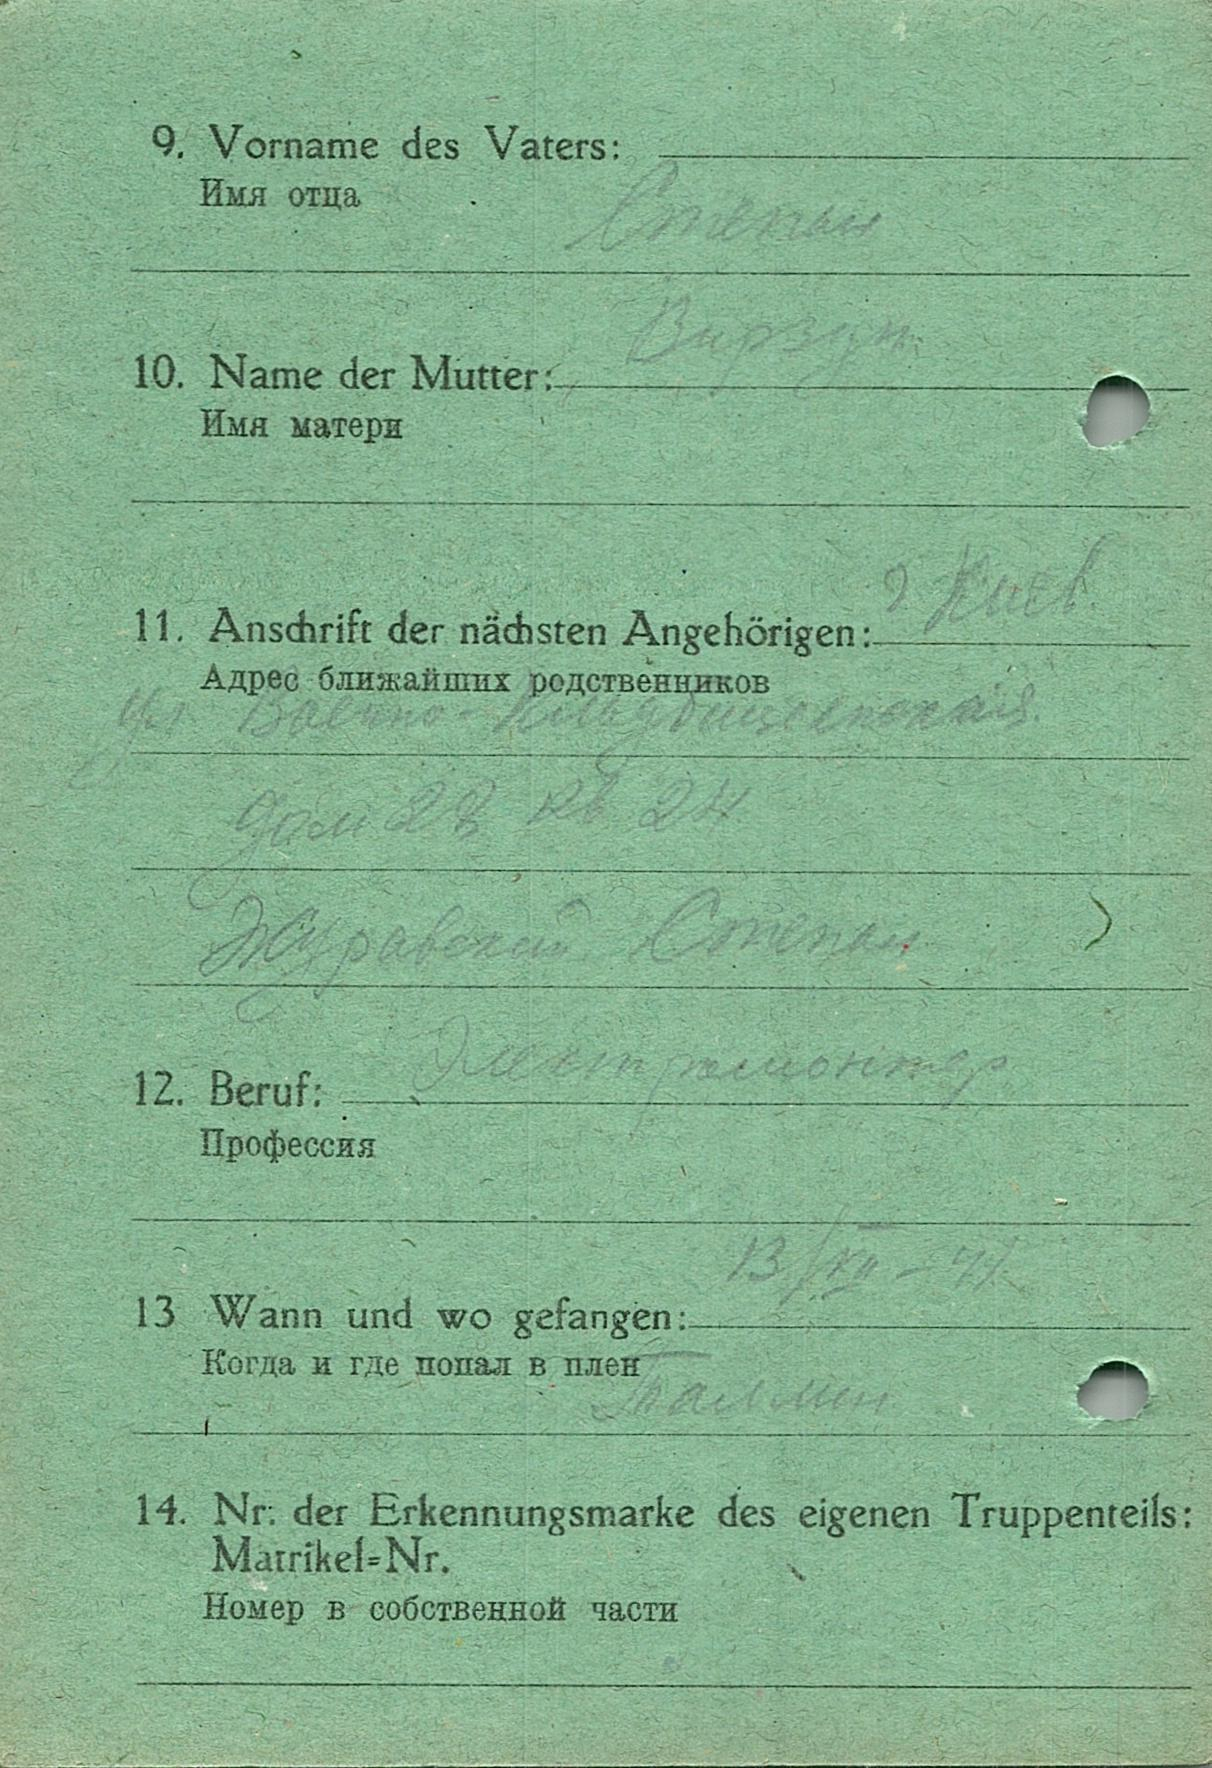 9. Vorname des Vaters:
Имя отца
Степан
10. Name der Mutter:
Имя матери
г Киев
11. Anschrift der nächsten Angehörigen:
Адрес ближайших родственников
ул
дом 28 кв 24
Журавский Степан
Электромонтер
12. Beruf:
Профессия
13/XII-41
13 Wann und wo gefangen:
Когда и где попал в плен
Таллин
14. Nr. der Erkennungsmarke des eigenen Truppenteils:
Matrikel=Nr.
Номер в собственной части